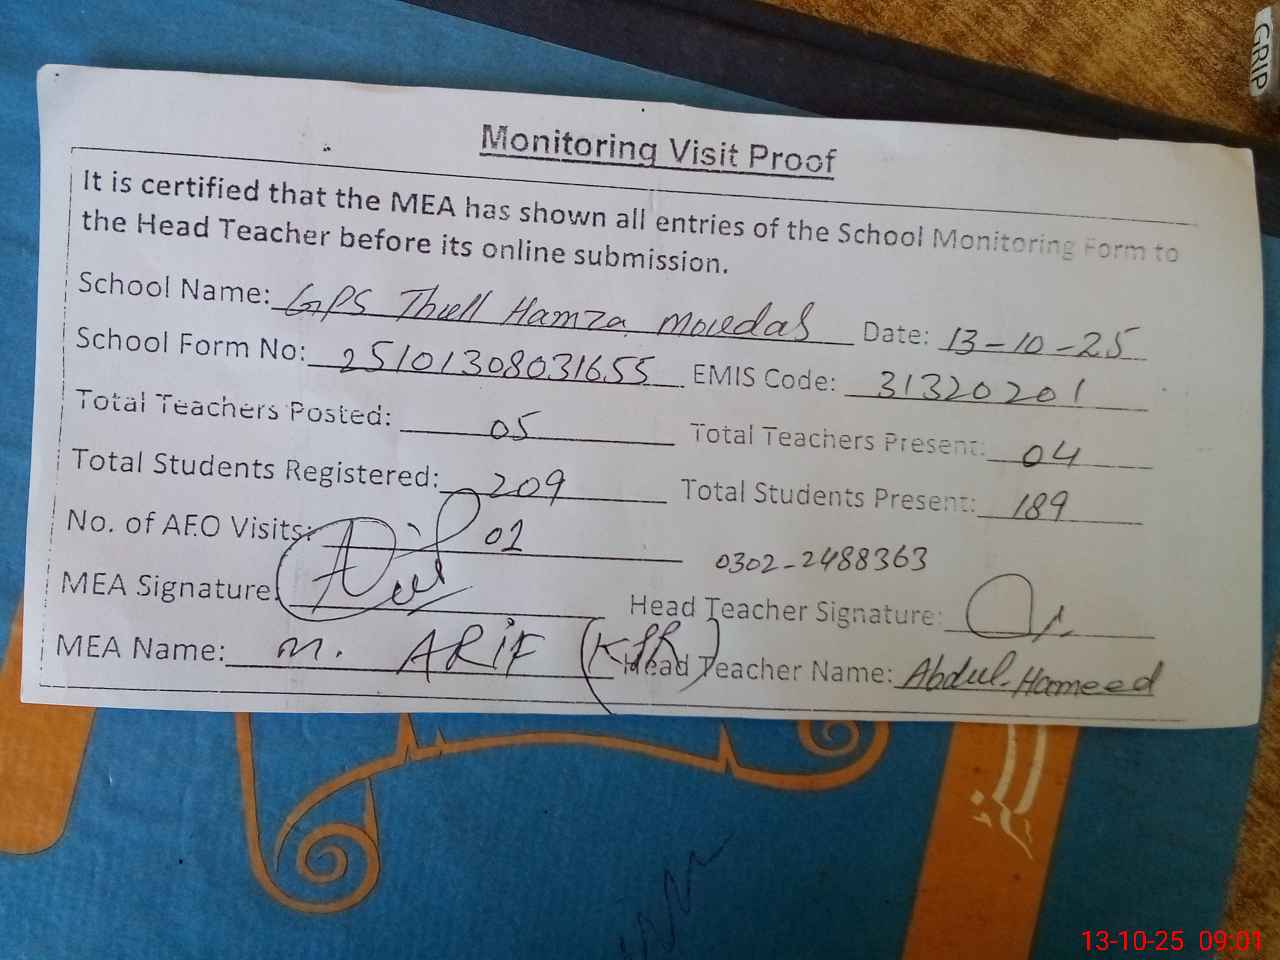 GRIP
Monitoring Visit Proof
It is certified that the MEA has shown all entries of the School Monitoring Form to
the Head Teacher before its online submission.
School Name: GPS Thull Hamza Mouedas Date: 13-10-25
School Form No: 25101308031655 EMIS Code: 31320201
Total Teachers Posted: 05 Total Teachers Present: 04
Total Students Registered: 209 Total Students Present: 189
No. of AEO Visits: 02
0302-2488363
MEA Signature: Head Teacher Signature:
MEA Name: M. ARIF (KPR) Head Teacher Name: Abdul Hameed
13-10-25 09:01